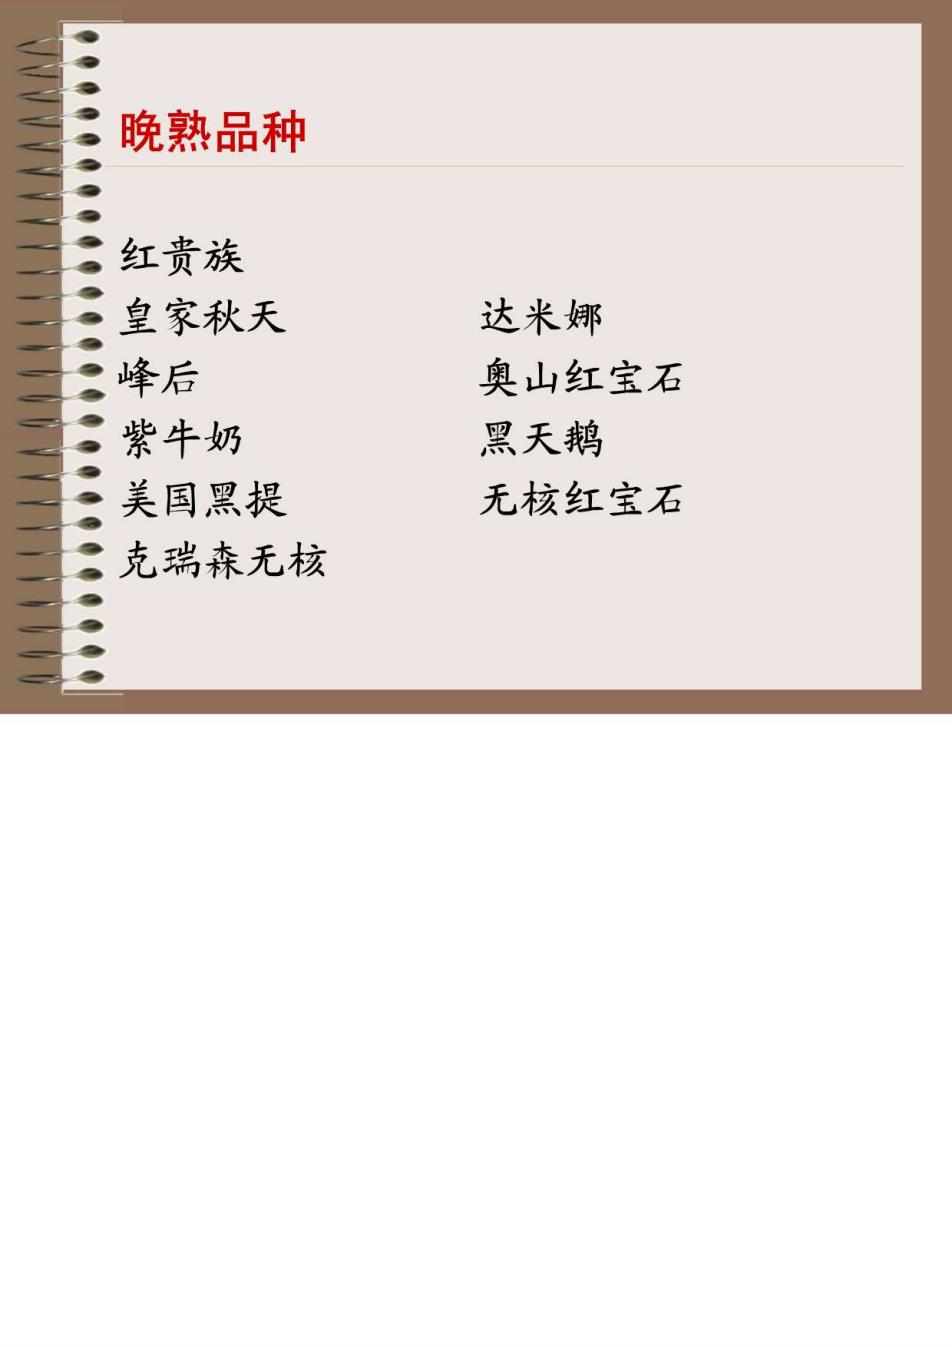 晚熟品种
红贵族
皇家秋天 达米娜
峰后 奥山红宝石
紫牛奶 黑天鹅
美国黑提 无核红宝石
克瑞森无核